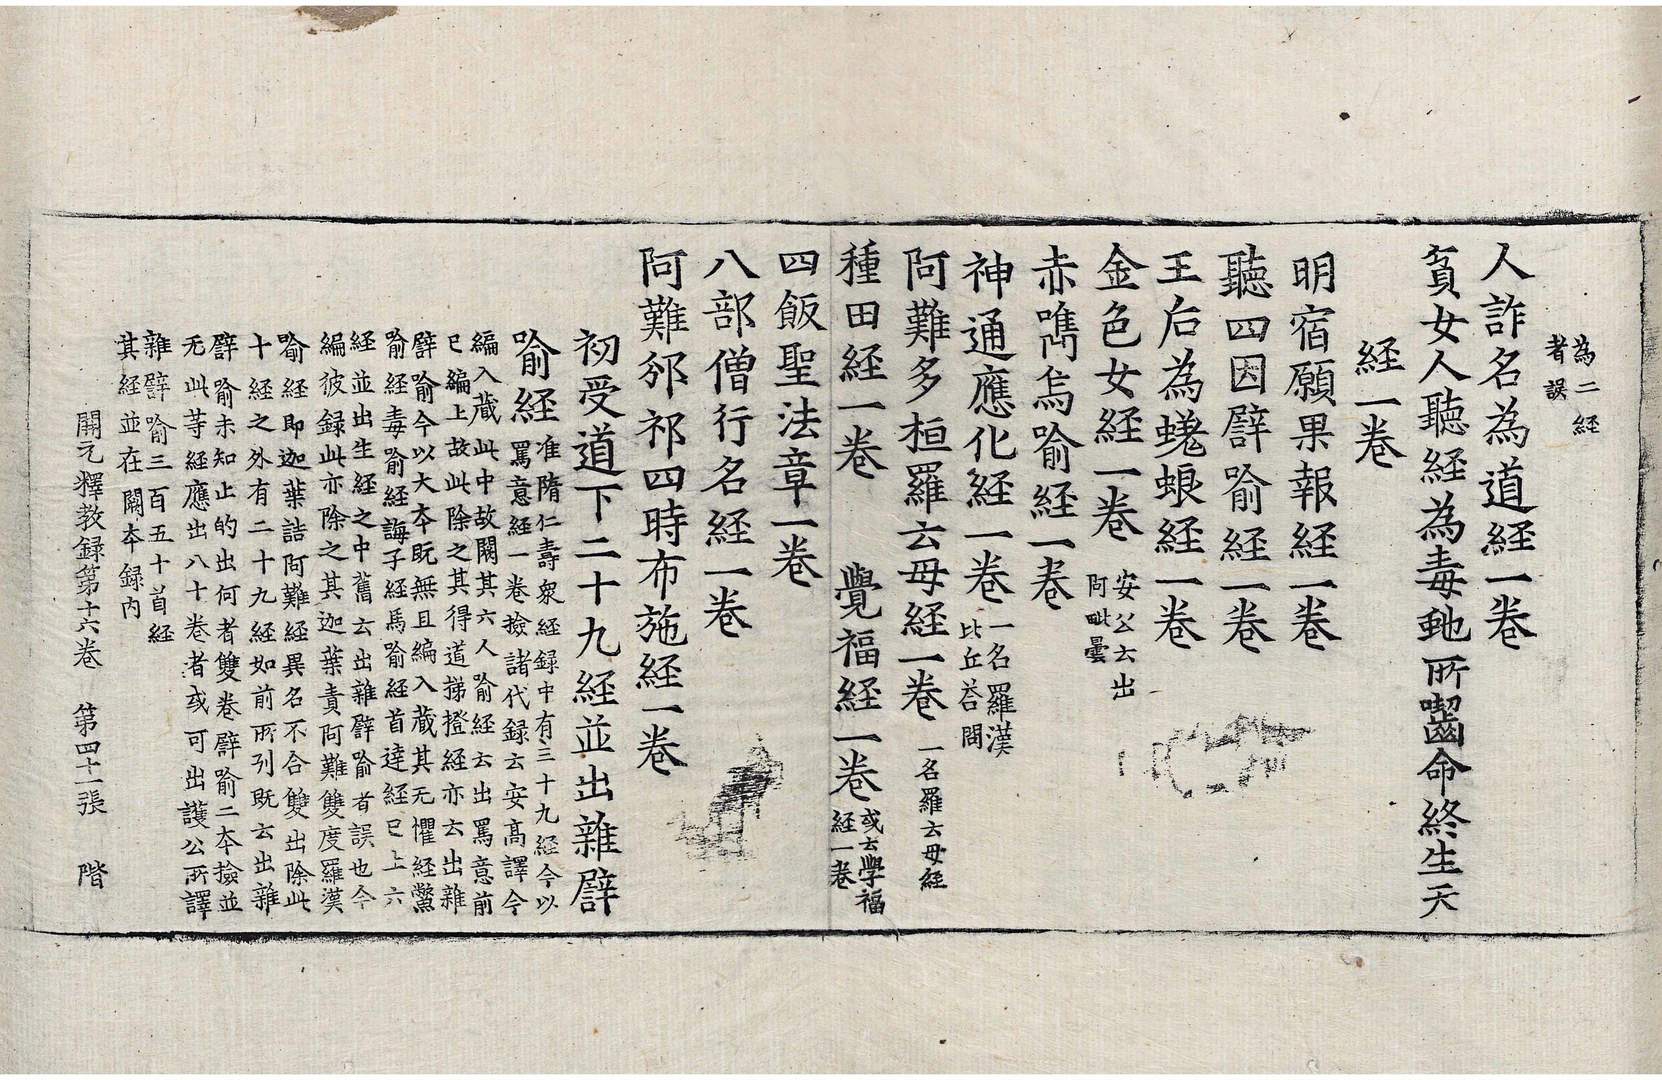 為二経
者誤
人詐名為道経一卷
貧女人聽経為毒虵所囓命終生天
経一卷
明宿願果報経一卷
聽四因譬喻経一卷
王后為蜣蜋経一卷
金色女経一卷 安公云出
阿毗曇
赤嘴烏喻経一卷
神通應化経一卷 一名羅漢
比丘荅問
阿難多桓羅云母経一卷 一名羅云母経
種田経一卷 覺福経一卷 或云學福
経一卷
四飯聖法章一卷
八部僧行名経一卷
阿難邠祁四時布施経一卷
初受道下二十九経並出雜譬
喻経 准隋仁壽衆経録中有三十九経今以
罵意経一卷撿諸代録云安高譯今
編入蔵此中故闕其六人喻経云出罵意前
已編上故此除之其得道捸橙経亦云出雜
譬喻今以大夲旣無且編入蔵其无懼経鱉
喻経毒喻経誨子経馬喻経首達経已上六
経並出生経之中舊云出雜譬喻者誤也今
編彼録此亦除之其迦葉責阿難雙度羅漢
喻経即迦葉詰阿難経異名不合雙出除此
十経之外有二十九経如前所列旣云出雜
譬喻未知止的出何者雙卷譬喻二夲撿並
无此等経應出八十卷者或可出護公所譯
雜譬喻三百五十首経
其経並在闕夲録內
開元釋教録第十六卷 第四十一張 階